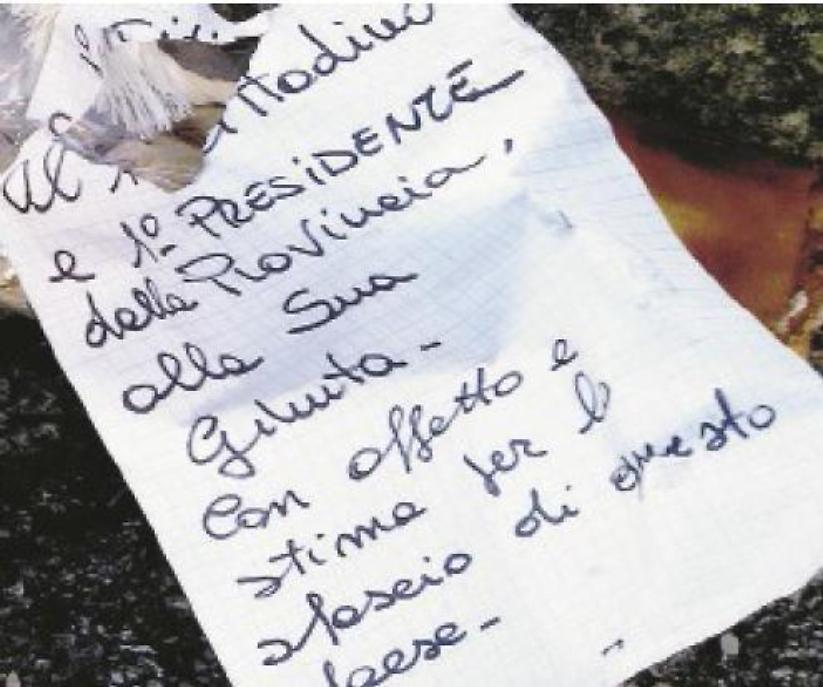 Al 1° cittadino
e 1° PRESIDENTE
della Provincia,
alla Sua
Giunta -
Con affetto e
stima per lo
sfascio di questo
paese -